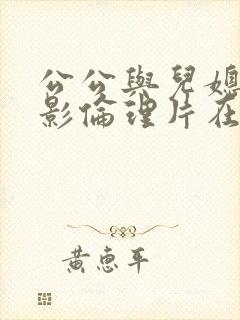 公公與兒媳
影倫理片在
黃惠平